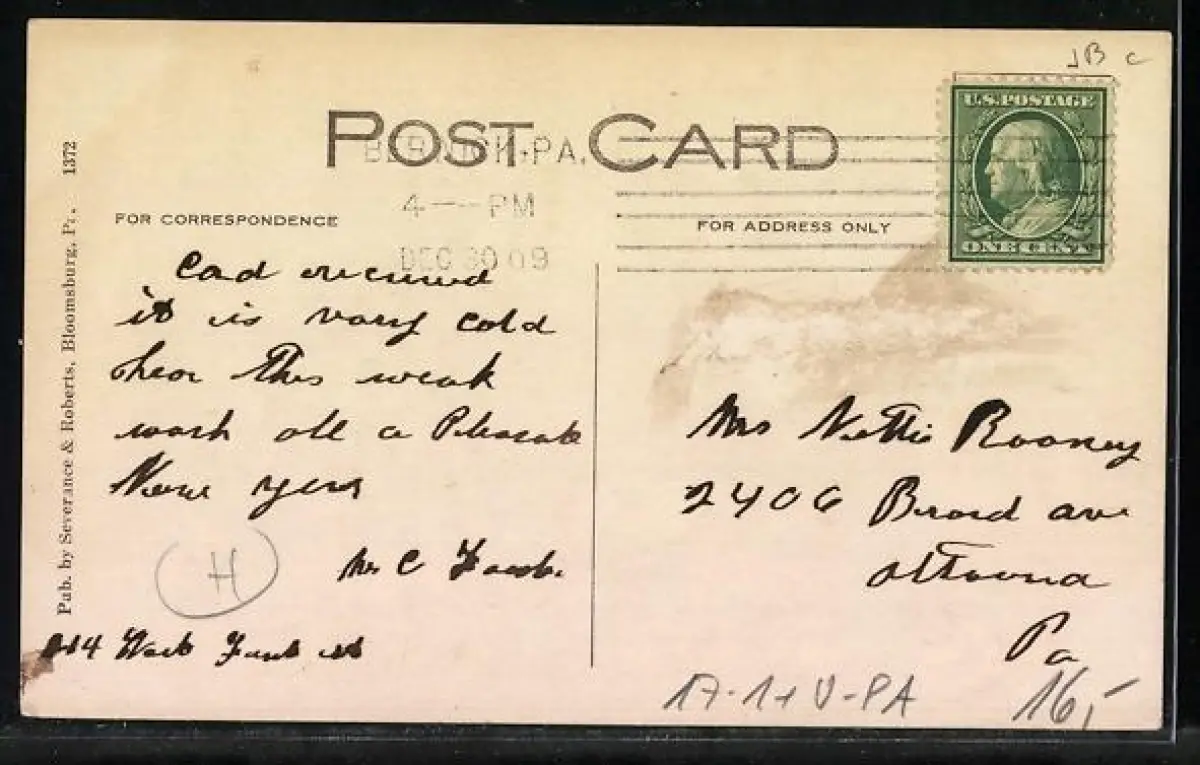 JB c
POST CARD
BERWICK, PA.
4 -- PM
DEC 30 09
U.S. POSTAGE
ONE CENT
FOR CORRESPONDENCE
FOR ADDRESS ONLY
Pub. by Severance & Roberts, Bloomsburg, Pa. 1372
Cad
it is vary cold
hear this weak
wash all a
New year
Mrs C
H
West st
Mrs Nettie Rooney
2406 Broad ave
Altoona
Pa
17-1+ V-PA
16,-